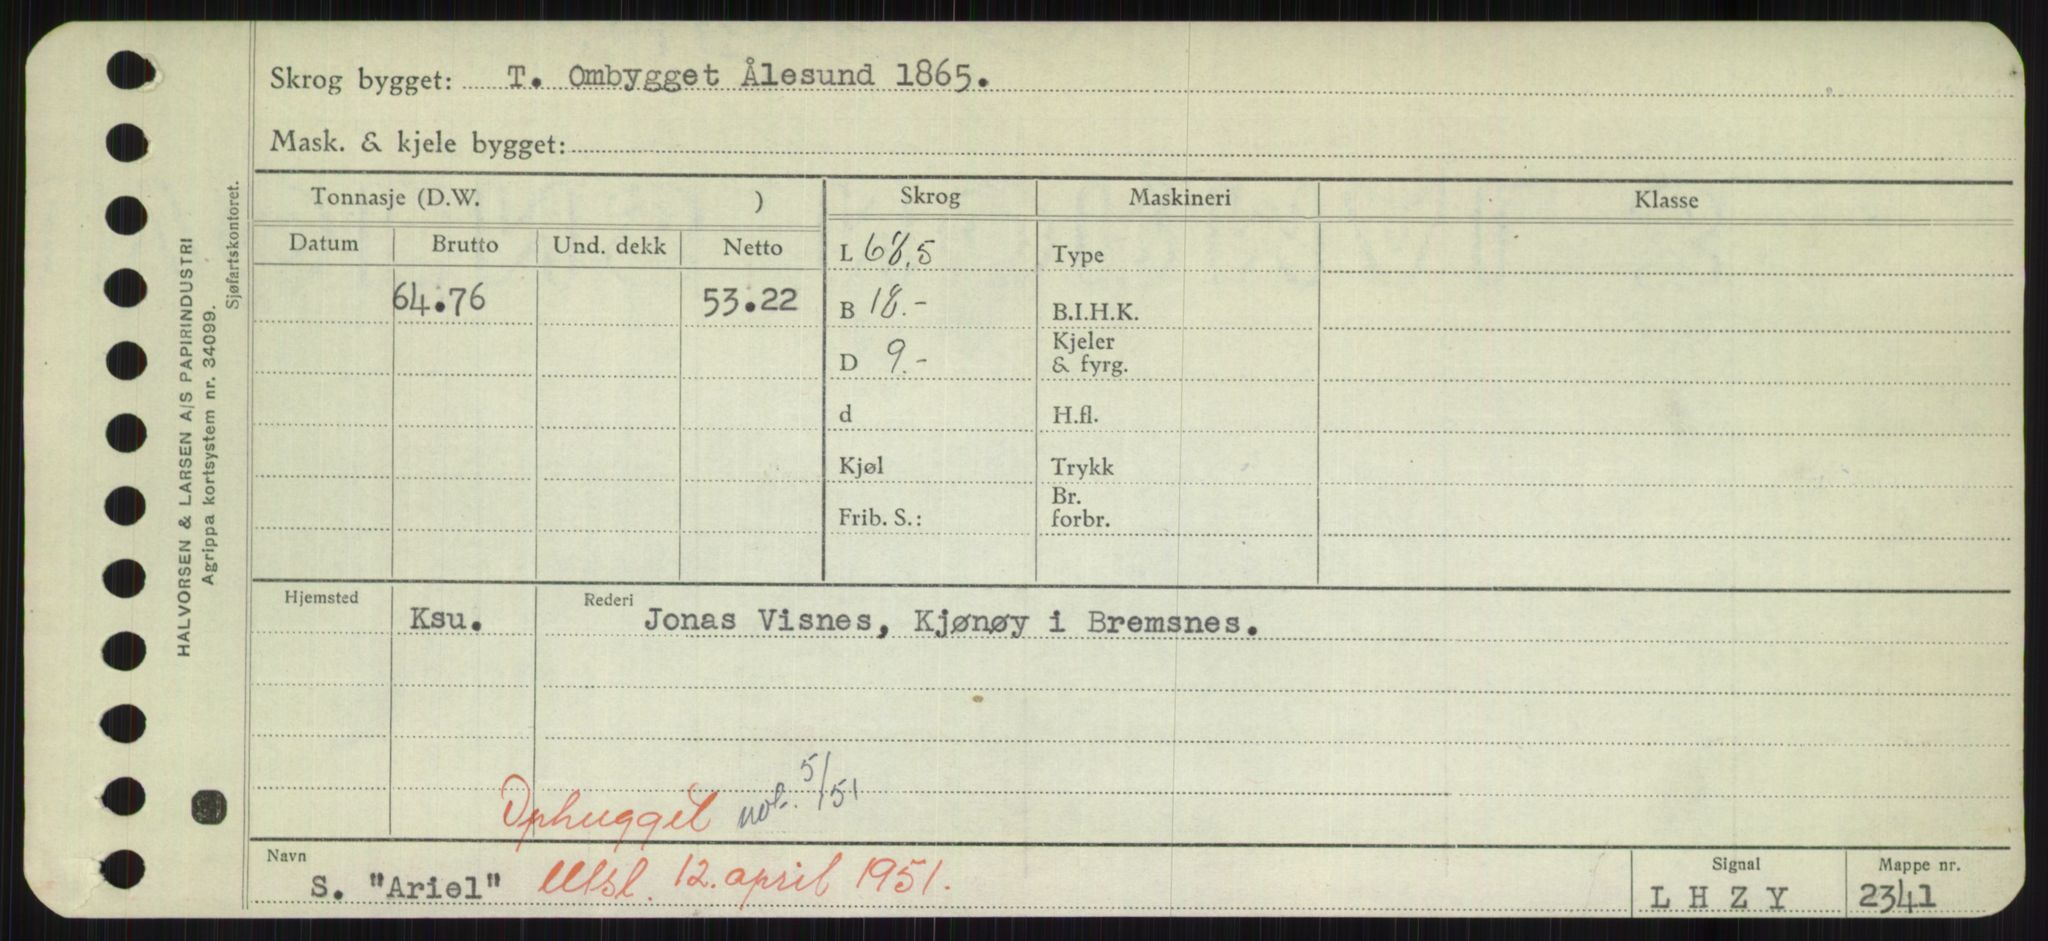 Skrog bygget: T. Ombygget Ålesund 1865.
Mask. & kjele bygget:
Tonnasje (D.W. ) Skrog Maskineri Klasse
Datum Brutto Und. dekk Netto L 68,5 Type
64.76 53.22 B 18.- B.I.H.K.
D 9.- Kjeler & fyrg.
d H.fl.
Kjøl Trykk
Frib. S.: Br. forbr.
Hjemsted Ksu. Rederi Jonas Visnes, Kjønøy i Bremsnes.
Ophugget not. 5/51
Navn S. "Ariel" Utsl. 12. april 1951. Signal L H Z Y Mappe nr. 2341
HALVORSEN & LARSEN A/S PAPIRINDUSTRI
Agrippa kortsystem nr. 34099.
Sjøfartskontoret.